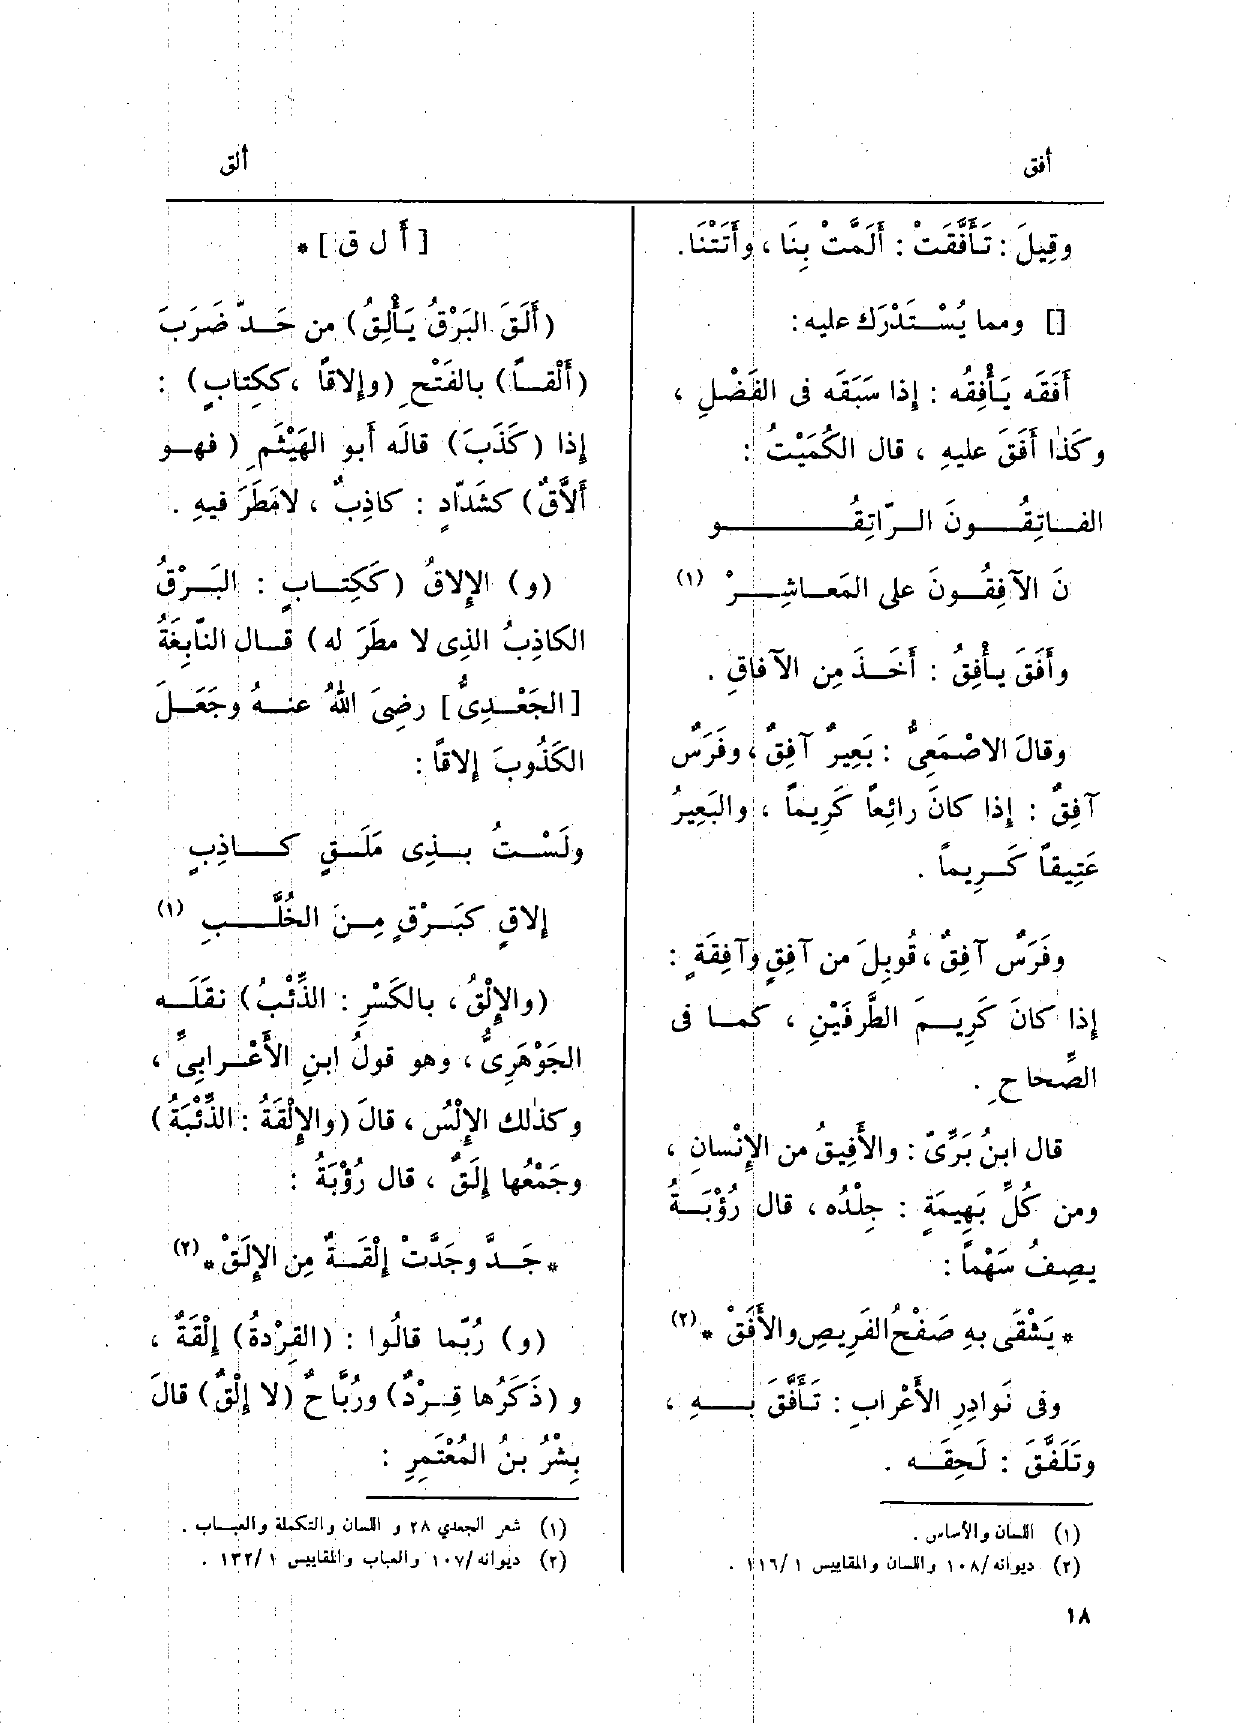 أفق
ألق
وقِيلَ : تَأَفَّقَتْ : أَلَمَّتْ بِنَا ، وأَتَتْنَا.
[] ومما يُسْتَدْرَك عليه :
أَفَقَه يَأْفِقُه : إذا سَبَقَه فى الفَضْلِ ،
وكَذٰا أَفَقَ عليهِ ، قال الكُمَيْتُ :
الفـاتِقُـونَ الـرّاتِقُـو
نَ الآفِقُـونَ على المَعـاشِـرْ (١)
وأَفَقَ يأْفِقُ : أَخَـذَ مِن الآفاقِ .
وقالَ الاصْمَعِىُّ : بَعِيرٌ آفِقٌ ، وفَرَسٌ
آفِقٌ : إذا كانَ رائِعاً كَرِيماً ، والبَعِيرُ
عَتِيقاً كَـرِيماً .
وفَرَسٌ آفِقٌ ، قُوبِلَ من آفِقٍ وآفِقَةٍ :
إذا كانَ كَرِيـمَ الطَّرفَيْنِ ، كمـا فى
الصِّحاحِ .
قال ابنُ بَرِّىّ : والأَفِيقُ من الإِنْسانِ ،
ومن كُلِّ بَهِيمَةٍ : جِلْدُه ، قال رُؤْبَـةُ
يصِفُ سَهْماً :
* يَشْقَى بهِ صَفْحُ الفَرِيصِ والأَفَقْ * (٢)
وفى نَوادِرِ الأَعْرابِ : تَأَفَّقَ بـهِ ،
وتَلَفَّقَ : لَحِقَـه .
(١) اللسان والأساس .
(٢) ديوانه /١٠٨ واللسان والمقاييس ١ /١١٦ .
[ أَ ل ق ] *
(أَلَقَ البَرْقُ يَأْلِقُ) من حَـدِّ ضَرَبَ
(أَلْقـاً) بالفَتْحِ (وإِلاقاً ، ككِتابٍ) :
إذا (كَذَبَ) قالَه أبو الهَيْثَمِ ( فهـو
أَلاَّقٌ) كشَدّادٍ : كاذِبٌ ، لامَطَرَ فيهِ .
(و) الإِلاقُ (كَكِتـابٍ : البَـرْقُ
الكاذِبُ الذِى لا مطَرَ له) قـال النّابِغَةُ
[الجَعْـدِىُّ] رضِىَ اللهُ عنـهُ وجَعَـلَ
الكَذُوبَ إلاقاً :
ولَسْـتُ بـذِى مَلَـقٍ كـاذِبٍ
إلاقٍ كبَـرْقٍ مِـنَ الخُلَّـبِ (١)
(والإِلْقُ ، بالكَسْرِ : الذِّئْبُ) نقَلَـه
الجَوْهَرِىُّ ، وهو قولُ ابنِ الأَعْـرابِىِّ ،
وكذٰلك الإِلْسُ ، قالَ (والإِلْقَةُ : الذِّئْبَةُ)
وجَمْعُها إِلَقٌ ، قال رُؤْبَةُ :
* جَـدَّ وجَدَّتْ إِلْقَـةٌ مِن الإِلَقْ * (٢)
(و) رُبّما قالُوا : (القِرْدةُ) إِلْقَةٌ ،
و (ذَكَرُها قِـرْدٌ) ورُبَّاحٌ (لا إِلْقٌ) قالَ
بِشْرُ بنُ المُعْتَمِرِ :
(١) شعر الجعدي ٢٨ و اللسان والتكملة والعبـاب .
(٢) ديوانه /١٠٧ والعباب والمقاييس ١ /١٣٢ .
١٨